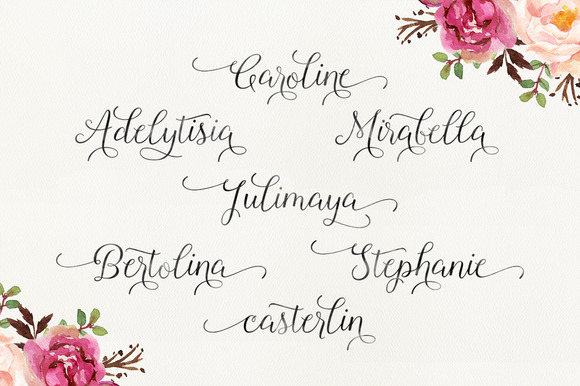 Caroline
Adelytisia Mirabella
Julimaya
Bertolina Stephanie
casterlin